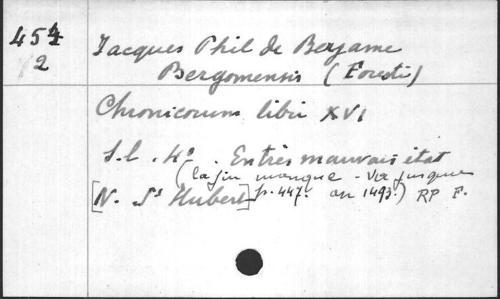 454
2
Jacques Phil de Bergame
Bergomensis (Foresti)
Chronicorum libri XVI
S.l. 4°. En très mauvais état
(la fin manque - va jusque
[N. St Hubert] p. 447. an 1493.) RP F.